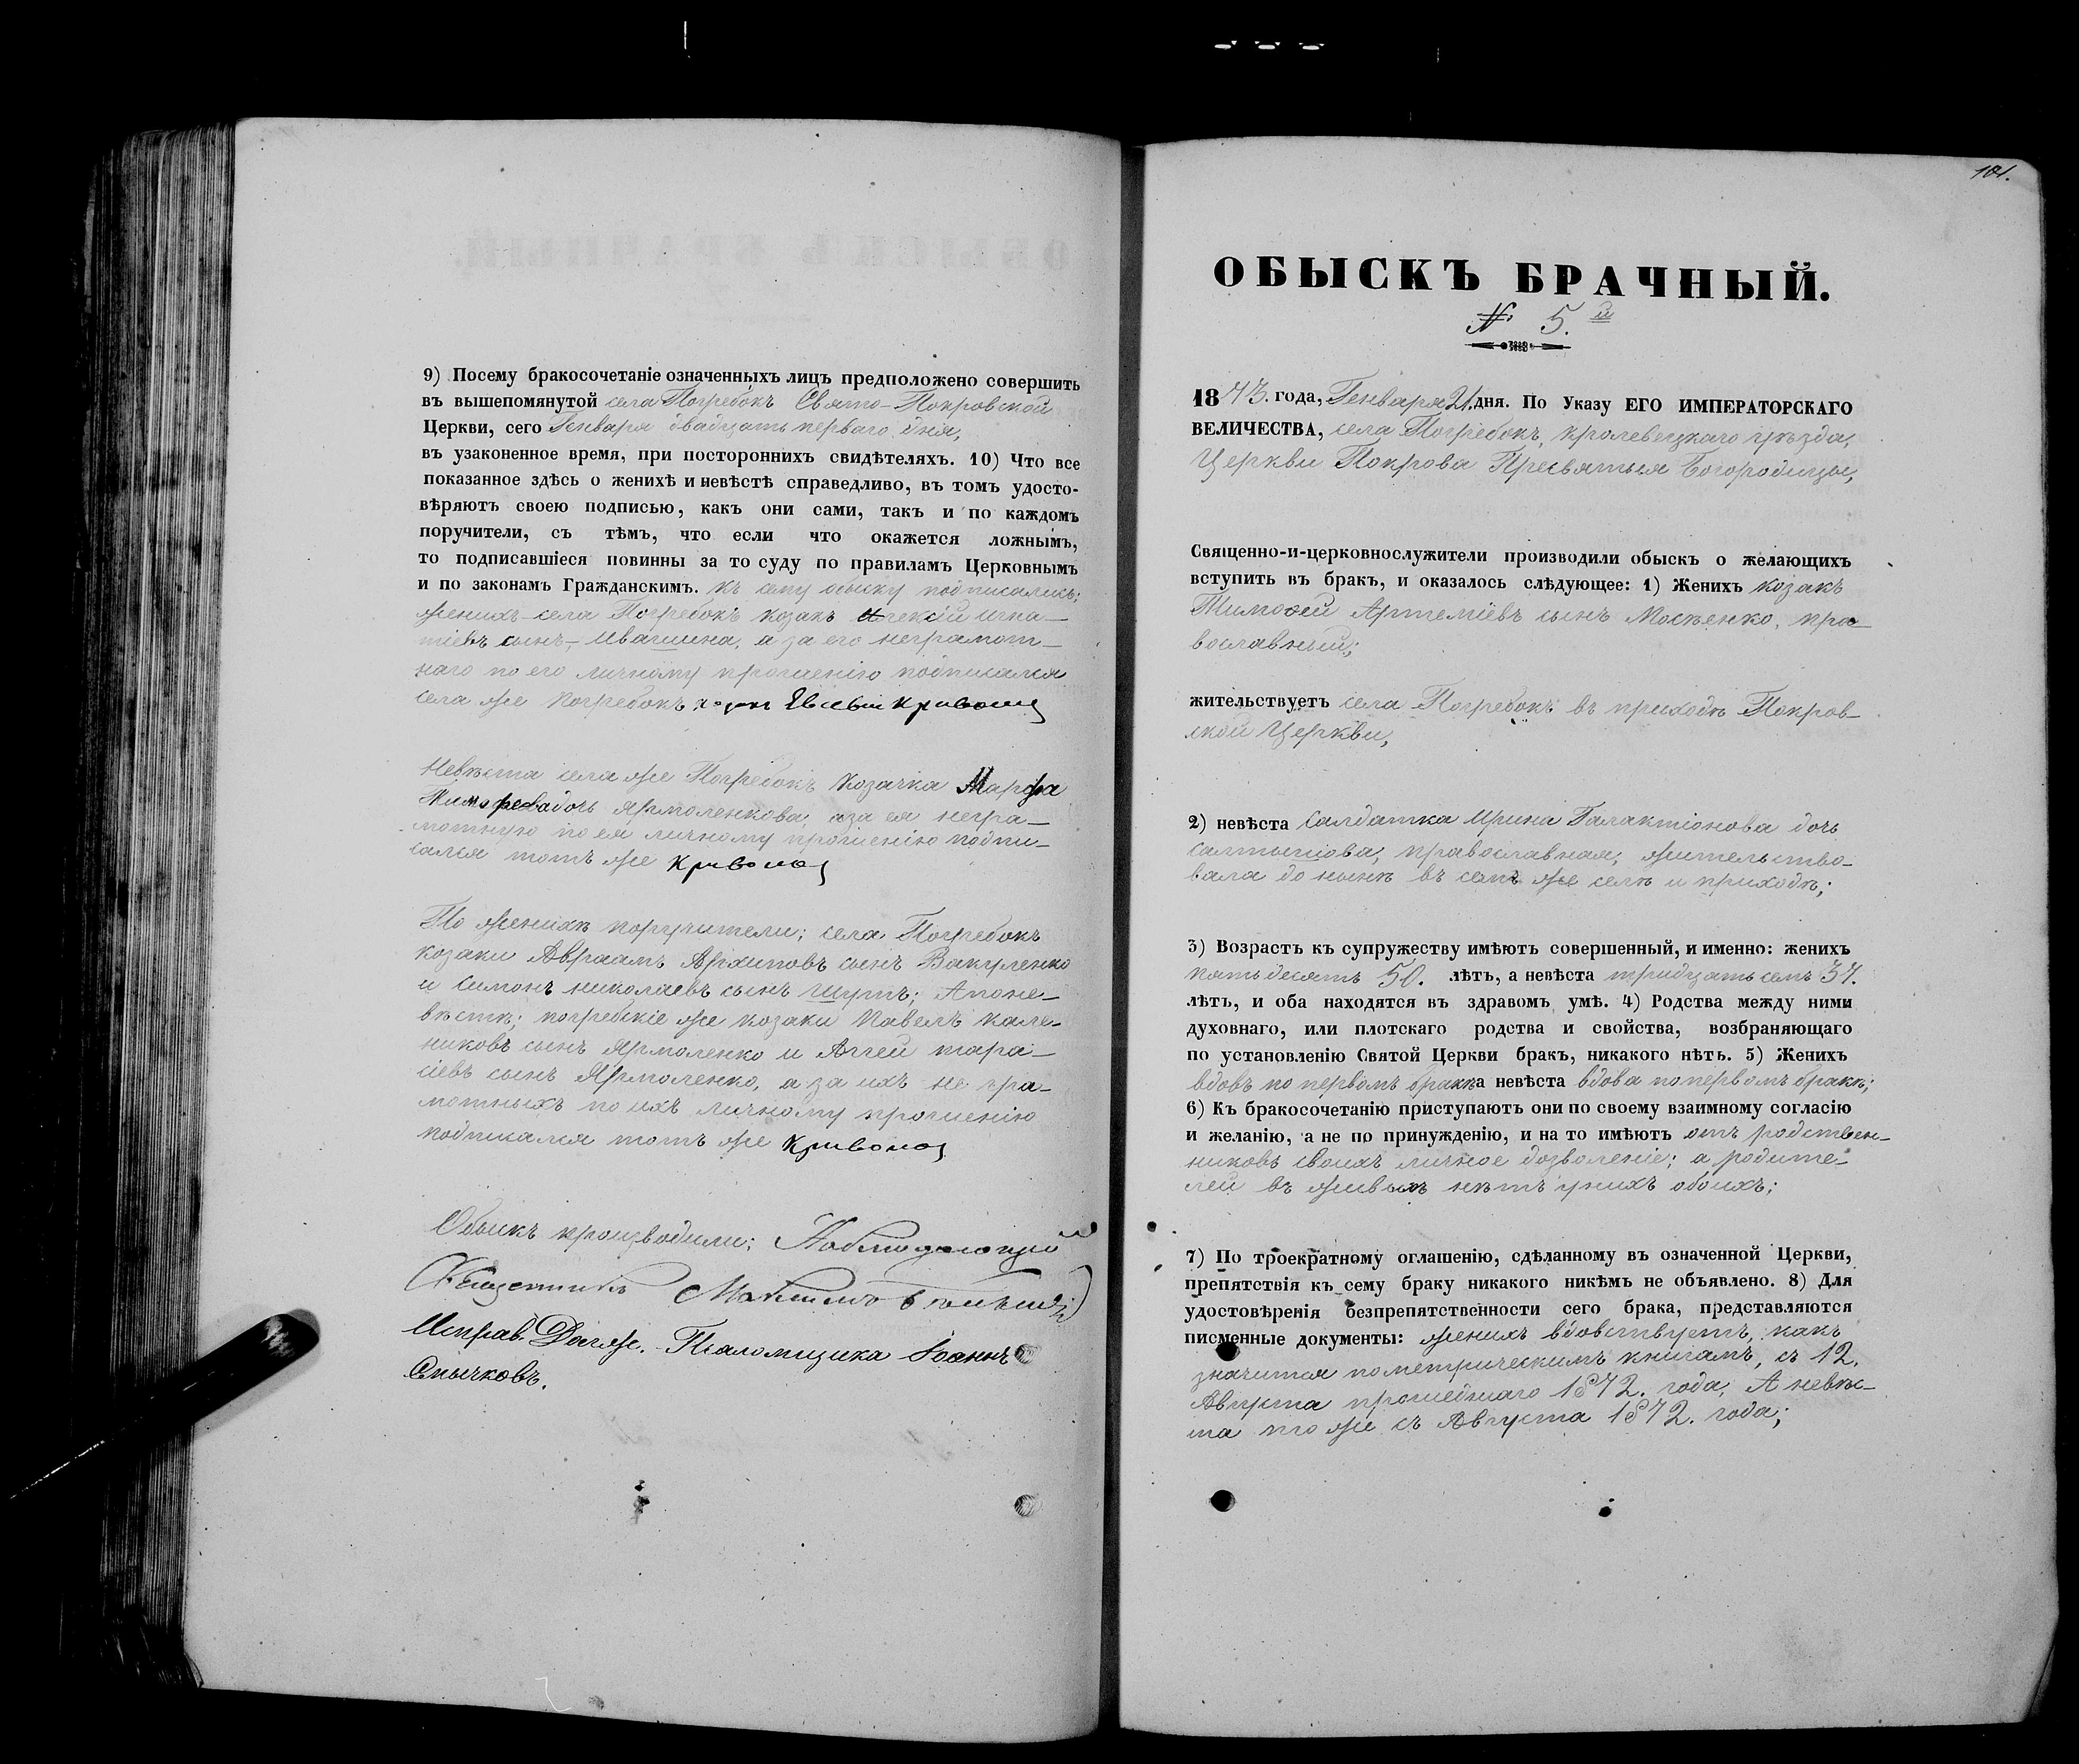 9) Посему бракосочетаніе означенныхъ лицъ предположено совершить
въ вышепомянутой села Погребокъ Свято-Покровской
Церкви, сего Генваря двадцать перваго дня,
въ узаконенное время, при постороннихъ свидѣтеляхъ. 10) Что все
показанное здѣсь о женихѣ и невѣстѣ справедливо, въ томъ удосто-
вѣряютъ своею подписью, какъ они сами, такъ и по каждомъ
поручители, съ тѣмъ, что если что окажется ложнымъ,
то подписавшіеся повинны за то суду по правиламъ Церковнымъ
и по законамъ Гражданскимъ. Къ сему обыску подписались;
женихъ села Погребокъ козакъ Алексій Игна-
тіевъ сынъ, Ивашина, а за его неграмот-
наго по его личному прошенію подписался
села же Погребокъ козакъ Евсевій Кривонос
Невѣста села же Погребокъ козачка Марфа
Тимофеева дочь Ярмоленкова, а за ея негра-
мотную по ея личному прошенію подпи-
сался тотъ же Кривонос
По женихѣ поручители; села Погребокъ
козаки Авраамъ Архиповъ сынъ Вакуленко
и Симонъ Николаевъ сынъ Шутъ; А по не-
вѣстѣ; погребскіе же козаки Павелъ Кале-
никовъ сынъ Ярмоленко и Аггей Тара-
сіевъ сынъ Ярмоленко, а за ихъ не гра-
мотныхъ по ихъ личному прошенію
подписался тотъ же Кривонос
Обыскъ производили; Наблюдающій
Священникъ
Исправ. Долж. Псаломщика Іоаннъ
Смычковъ.
101.
ОБЫСКЪ БРАЧНЫЙ.
№ 5.й
1873. года, Генваря 21. дня. По Указу ЕГО ИМПЕРАТОРСКАГО
ВЕЛИЧЕСТВА, села Погребокъ, кролевецкаго уѣзда,
Церкви Покрова Пресвятыя Богородицы,
Священно-и-церковнослужители производили обыскъ о желающихъ
вступить въ бракъ, и оказалось слѣдующее: 1) Женихъ козакъ
Тимофей Артеміевъ сынъ Мосѣенко, пра-
вославный;
жительствуетъ села Погребокъ въ приходѣ Покров-
ской Церкви,
2) невѣста Салдатка Ирина Галактіонова дочь
Салтыкова, православная, жительство-
вала до нынѣ въ семъ же селѣ и приходѣ;
3) Возрастъ къ супружеству имѣютъ совершенный, и именно: женихъ
пятьдесятъ 50. лѣтъ, а невѣста тридцать семъ 37.
лѣтъ, и оба находятся въ здравомъ умѣ. 4) Родства между ними
духовнаго, или плотскаго родства и свойства, возбраняющаго
по установленію Святой Церкви бракъ, никакого нѣтъ. 5) Женихъ
вдовъ по первомъ бракѣ а невѣста вдова по первомъ бракѣ;
6) Къ бракосочетанію приступаютъ они по своему взаимному согласію
и желанію, а не по принужденію, и на то имѣютъ отъ родствен-
никовъ своихъ личное дозволеніе; а родите-
лей въ живыхъ нѣтъ у нихъ обоихъ;
7) По троекратному оглашенію, сдѣланному въ означенной Церкви,
препятствія къ сему браку никакого никѣмъ не объявлено. 8) Для
удостовѣренія безпрепятственности сего брака, представляются
писменные документы: женихъ вдовствуетъ, какъ
значится по метрическимъ книгамъ, съ 12.
Августа прошедшаго 1872. года, А невѣс-
та то же съ Августа 1872. года;